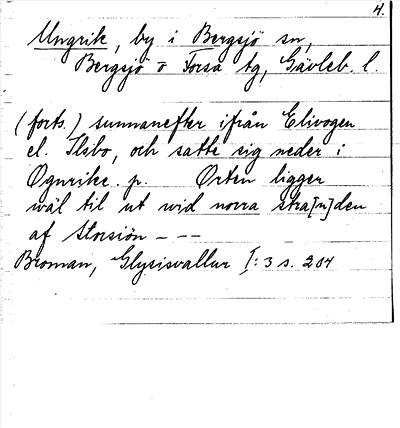 4.
Ungrik, by i Bergsjö sn,
Bergsjö o Forsa tg, Gävleb. l.
(forts.) sunnanefter ifrån Elivogen
el. Ilsbo, och satte sig neder i
Ognrike. p. Orten ligger
wäl til ut wid norra stra[n]den
af Storsiön - --
Broman, Glysisvallur I: 3 s. 204